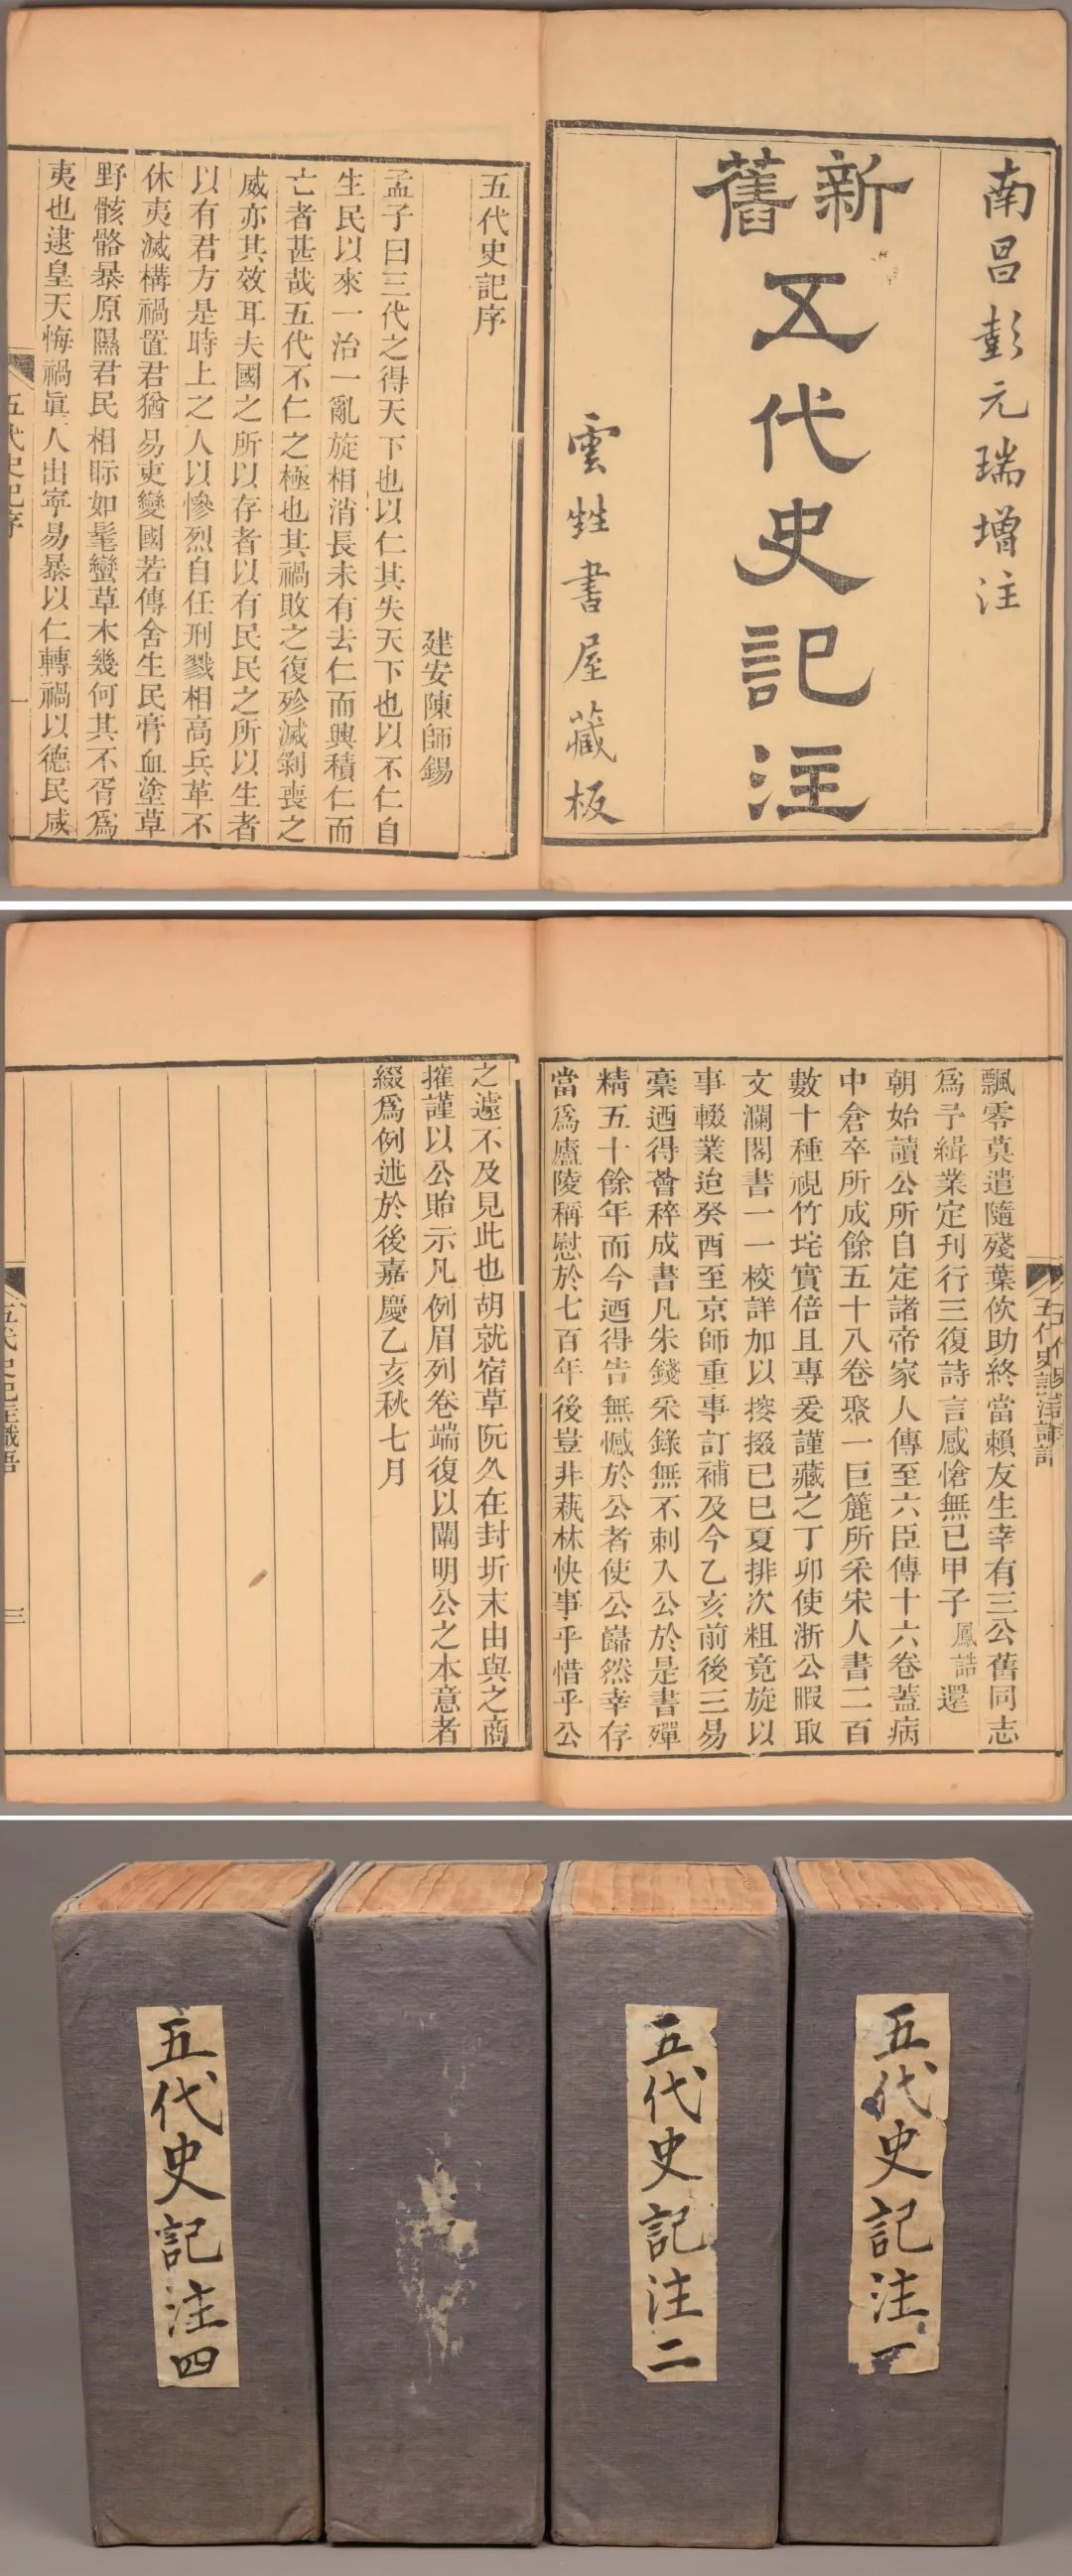 南昌彭元瑞增注
新舊五代史記注
雲甡書屋藏板
五代史記序
建安陳師錫
孟子曰三代之得天下也以仁其失天下也以不仁自
生民以來一治一亂旋相消長未有去仁而興積仁而
亡者甚哉五代不仁之極也其禍敗之復殄滅剝喪之
威亦其效耳夫國之所以存者以有民民之所以生者
以有君方是時上之人以慘烈自任刑戮相高兵革不
休夷滅構禍置君猶易吏變國若傳舍生民膏血塗草
野骸骼暴原隰君民相眎如髦蠻草木幾何其不胥爲
夷也逮皇天悔禍眞人出寧易暴以仁轉禍以德民咸
五代史記序
一
飄零莫遣隨殘葉佽助終當賴友生幸有三公舊同志
爲予緝業定刊行三復詩言感愴無已甲子鳳誥還
朝始讀公所自定諸帝家人傳至六臣傳十六卷蓋病
中倉卒所成餘五十八卷聚一巨簏所采宋人書二百
數十種視竹垞實倍且專爰謹藏之丁卯使浙公暇取
文瀾閣書一一校詳加以捃掇己巳夏排次粗竟旋以
事輟業迨癸酉至京師重事訂補及今乙亥前後三易
稾迺得薈稡成書凡朱錢采錄無不刺入公於是書殫
精五十餘年而今迺得告無憾於公者使公巋然幸存
當爲廬陵稱慰於七百年後豈非蓺林快事乎惜乎公
之遽不及見此也胡就宿草阮久在封圻末由與之商
搉謹以公貽示凡例眉列卷端復以闡明公之本意者
綴爲例述於後嘉慶乙亥秋七月
五代史記注識語
三
五代史記注一
五代史記注二
五代史記注四